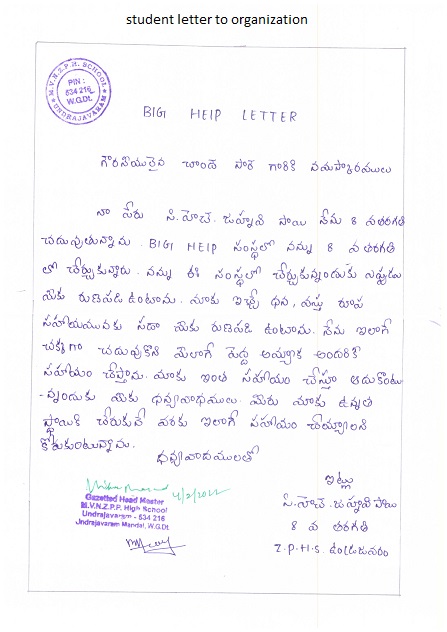 student letter to organization
M.V.N.Z.P.H. SCHOOL
PIN:
534 216
W.G.Dt.
UNDRAJAVARAM
BIG HELP LETTER
గౌరనీయులైన చాంద్ పాషా గారికి నమస్కారములు
నా పేరు సి.హెచ్. జాహ్నవి సాయి నేను 8 వతరగతి
చదువుతున్నాను. BIG HELP సంస్థలో నన్ను 8 వ తరగతి
లో చేర్చుకున్నారు. నన్ను ఈ సంస్థలో చేర్చుకున్నందుకు ఎప్పుడు
మీకు రుణపడి ఉంటాను. మాకు ఇచ్చే ధన, వస్తు రూప
సహాయమునకు సదా మీకు రుణపడి ఉంటాను. నేను ఇలాగే
చక్కగా చదువుకొని మీలాగే పెద్ద అయ్యాక అందరికి
సహాయం చేస్తాను. మాకు ఇంత సహాయం చేస్తూ ఆదుకొంటు
-న్నందుకు మీకు ధన్యవాదములు. మీరు మాకు ఉన్నత
స్థాయికి చేరుకునే వరకు ఇలాగే సహాయం చేయ్యాలని
కోరుకుంటున్నాను.
ధన్యవాదములతో
ఇట్లు
సి.హెచ్. జాహ్నవి సాయి
8 వ తరగతి
Z.P.H.S. ఉండ్రాజవరం
4/2/2022
Gazetted Head Master
M.V.N.Z.P.P. High School
Undrajavaram - 534 216
Undrajavaram Mandal, W.G.Dt.